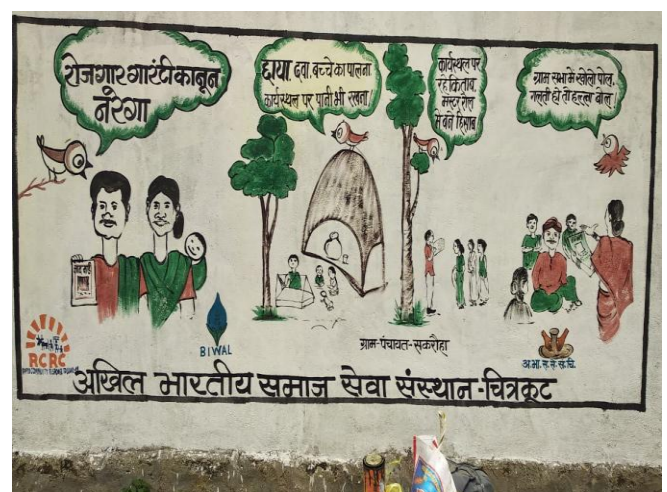 रोजगार गारंटी कानून
नरेगा
छाया, दवा, बच्चे का पालना
कार्यस्थल पर पानी भी रखना
कार्यस्थल पर
रहे किताब,
मस्टर रोल
से बने हिसाब
ग्राम सभा में खोलो पोल,
गलती हो तो हल्ला बोल
RCRC
BIWAL
ग्राम-पंचायत-सकरौहा
अ.भा.स.से.सं.चि.
अखिल भारतीय समाज सेवा संस्थान-चित्रकूट